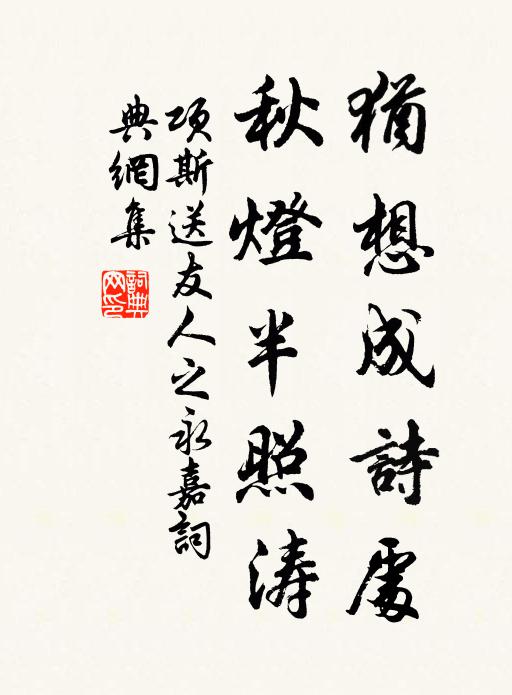 猶想成詩處
秋燈半照涛
項斯送友人之永嘉詞
典網集
詞典網印